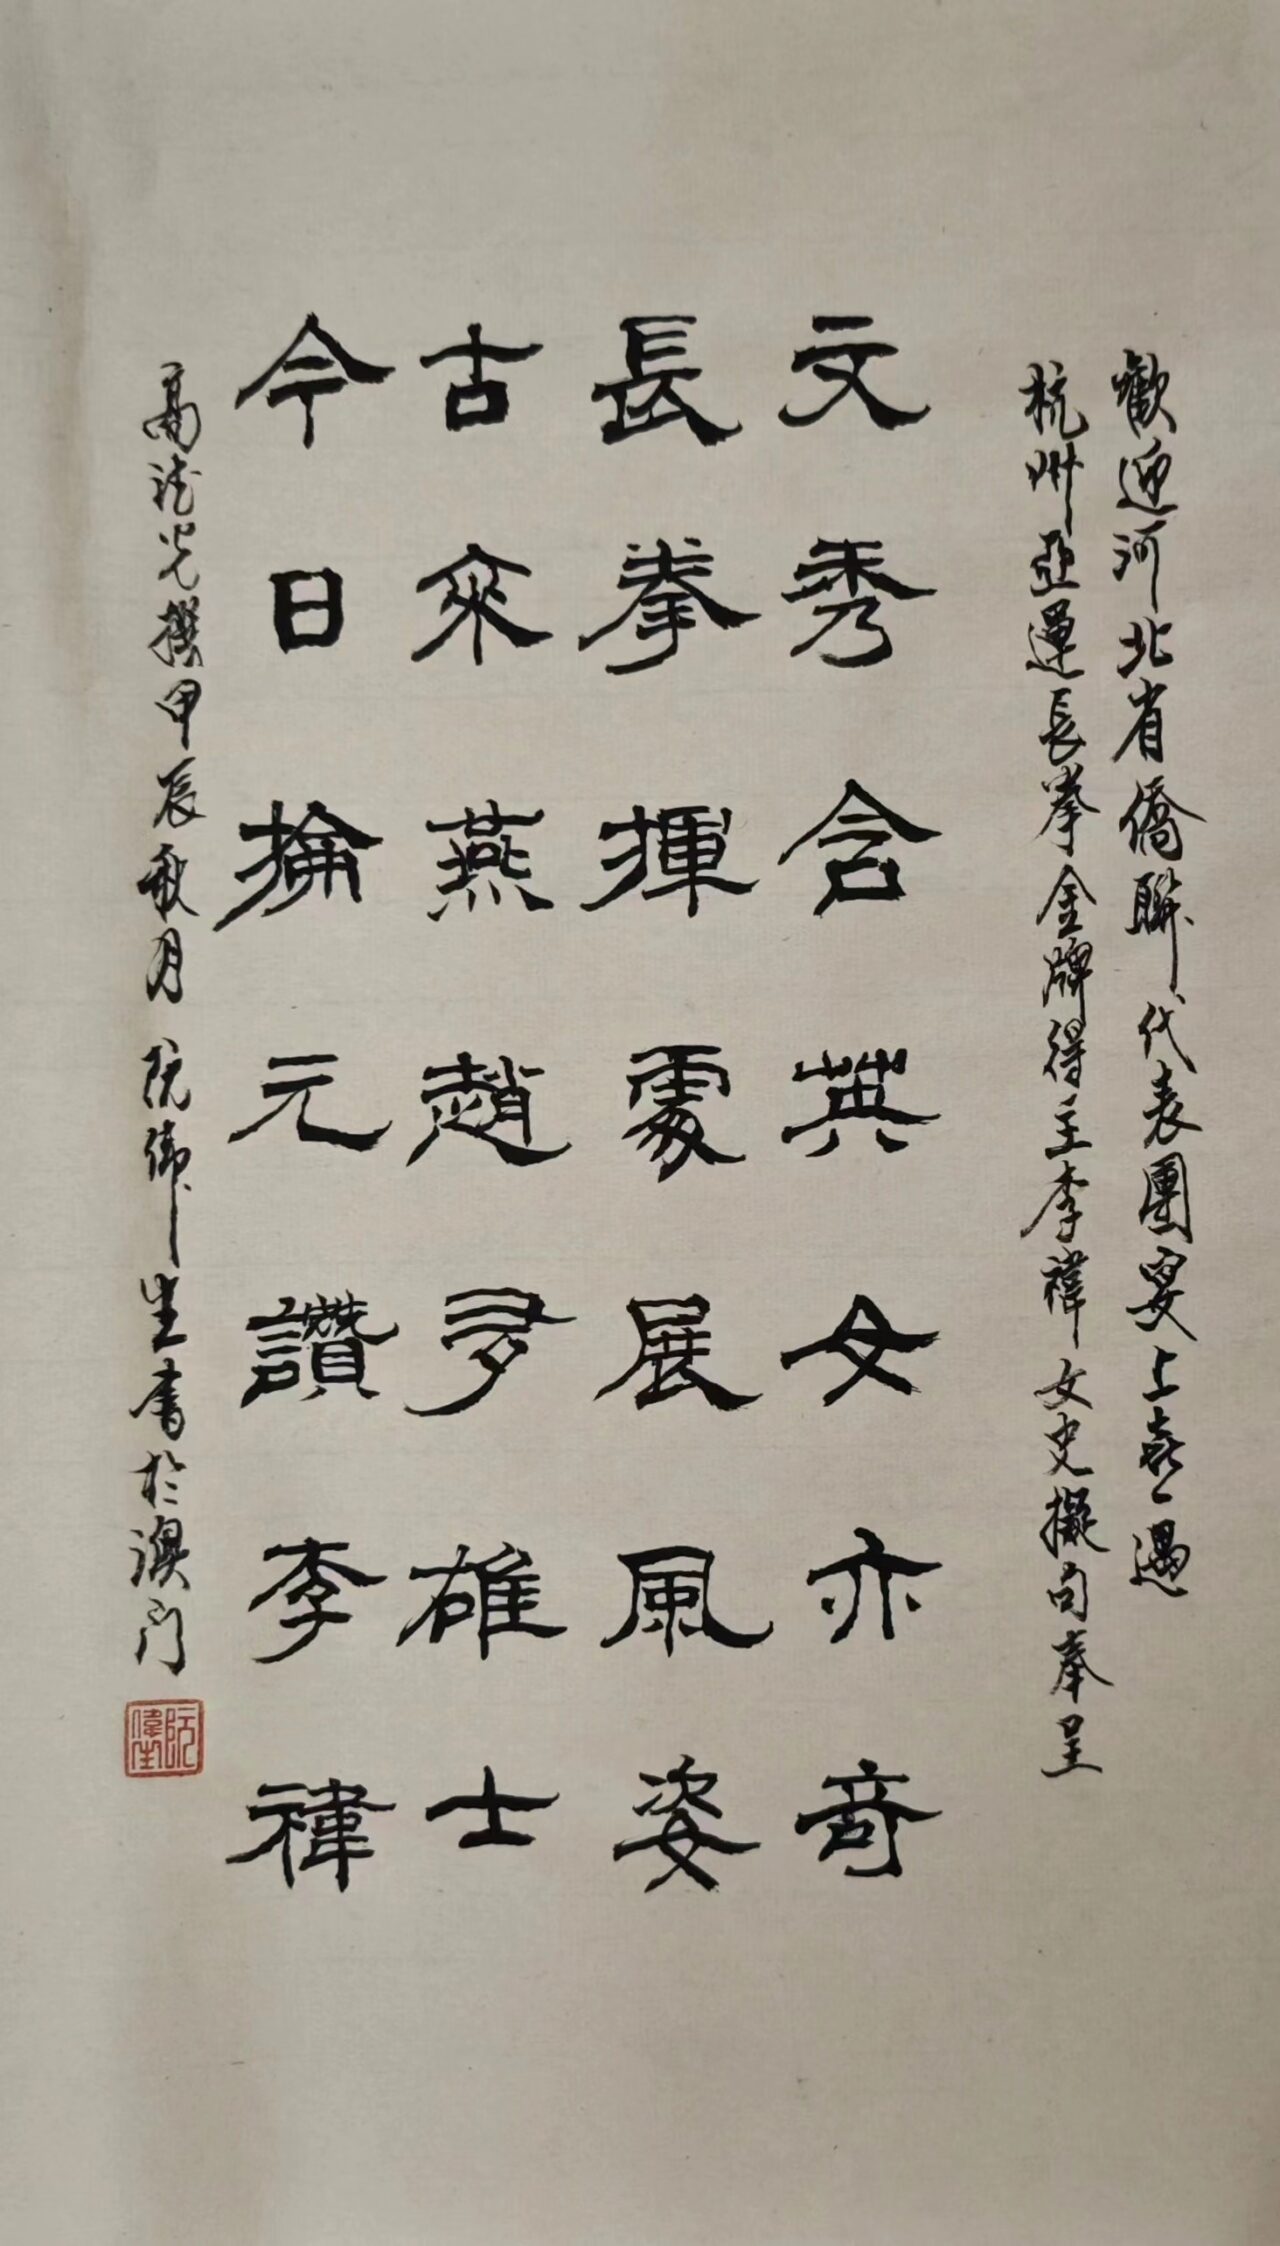 歡迎河北省僑聯代表團宴上喜遇
杭州亞運長拳金牌得主李禕女史擬句奉呈
文秀含英女亦奇
長拳揮處展風姿
古來燕趙多雄士
今日掄元讚李禕
高 光撰甲辰秋月阮衛生書於澳门
阮衛生